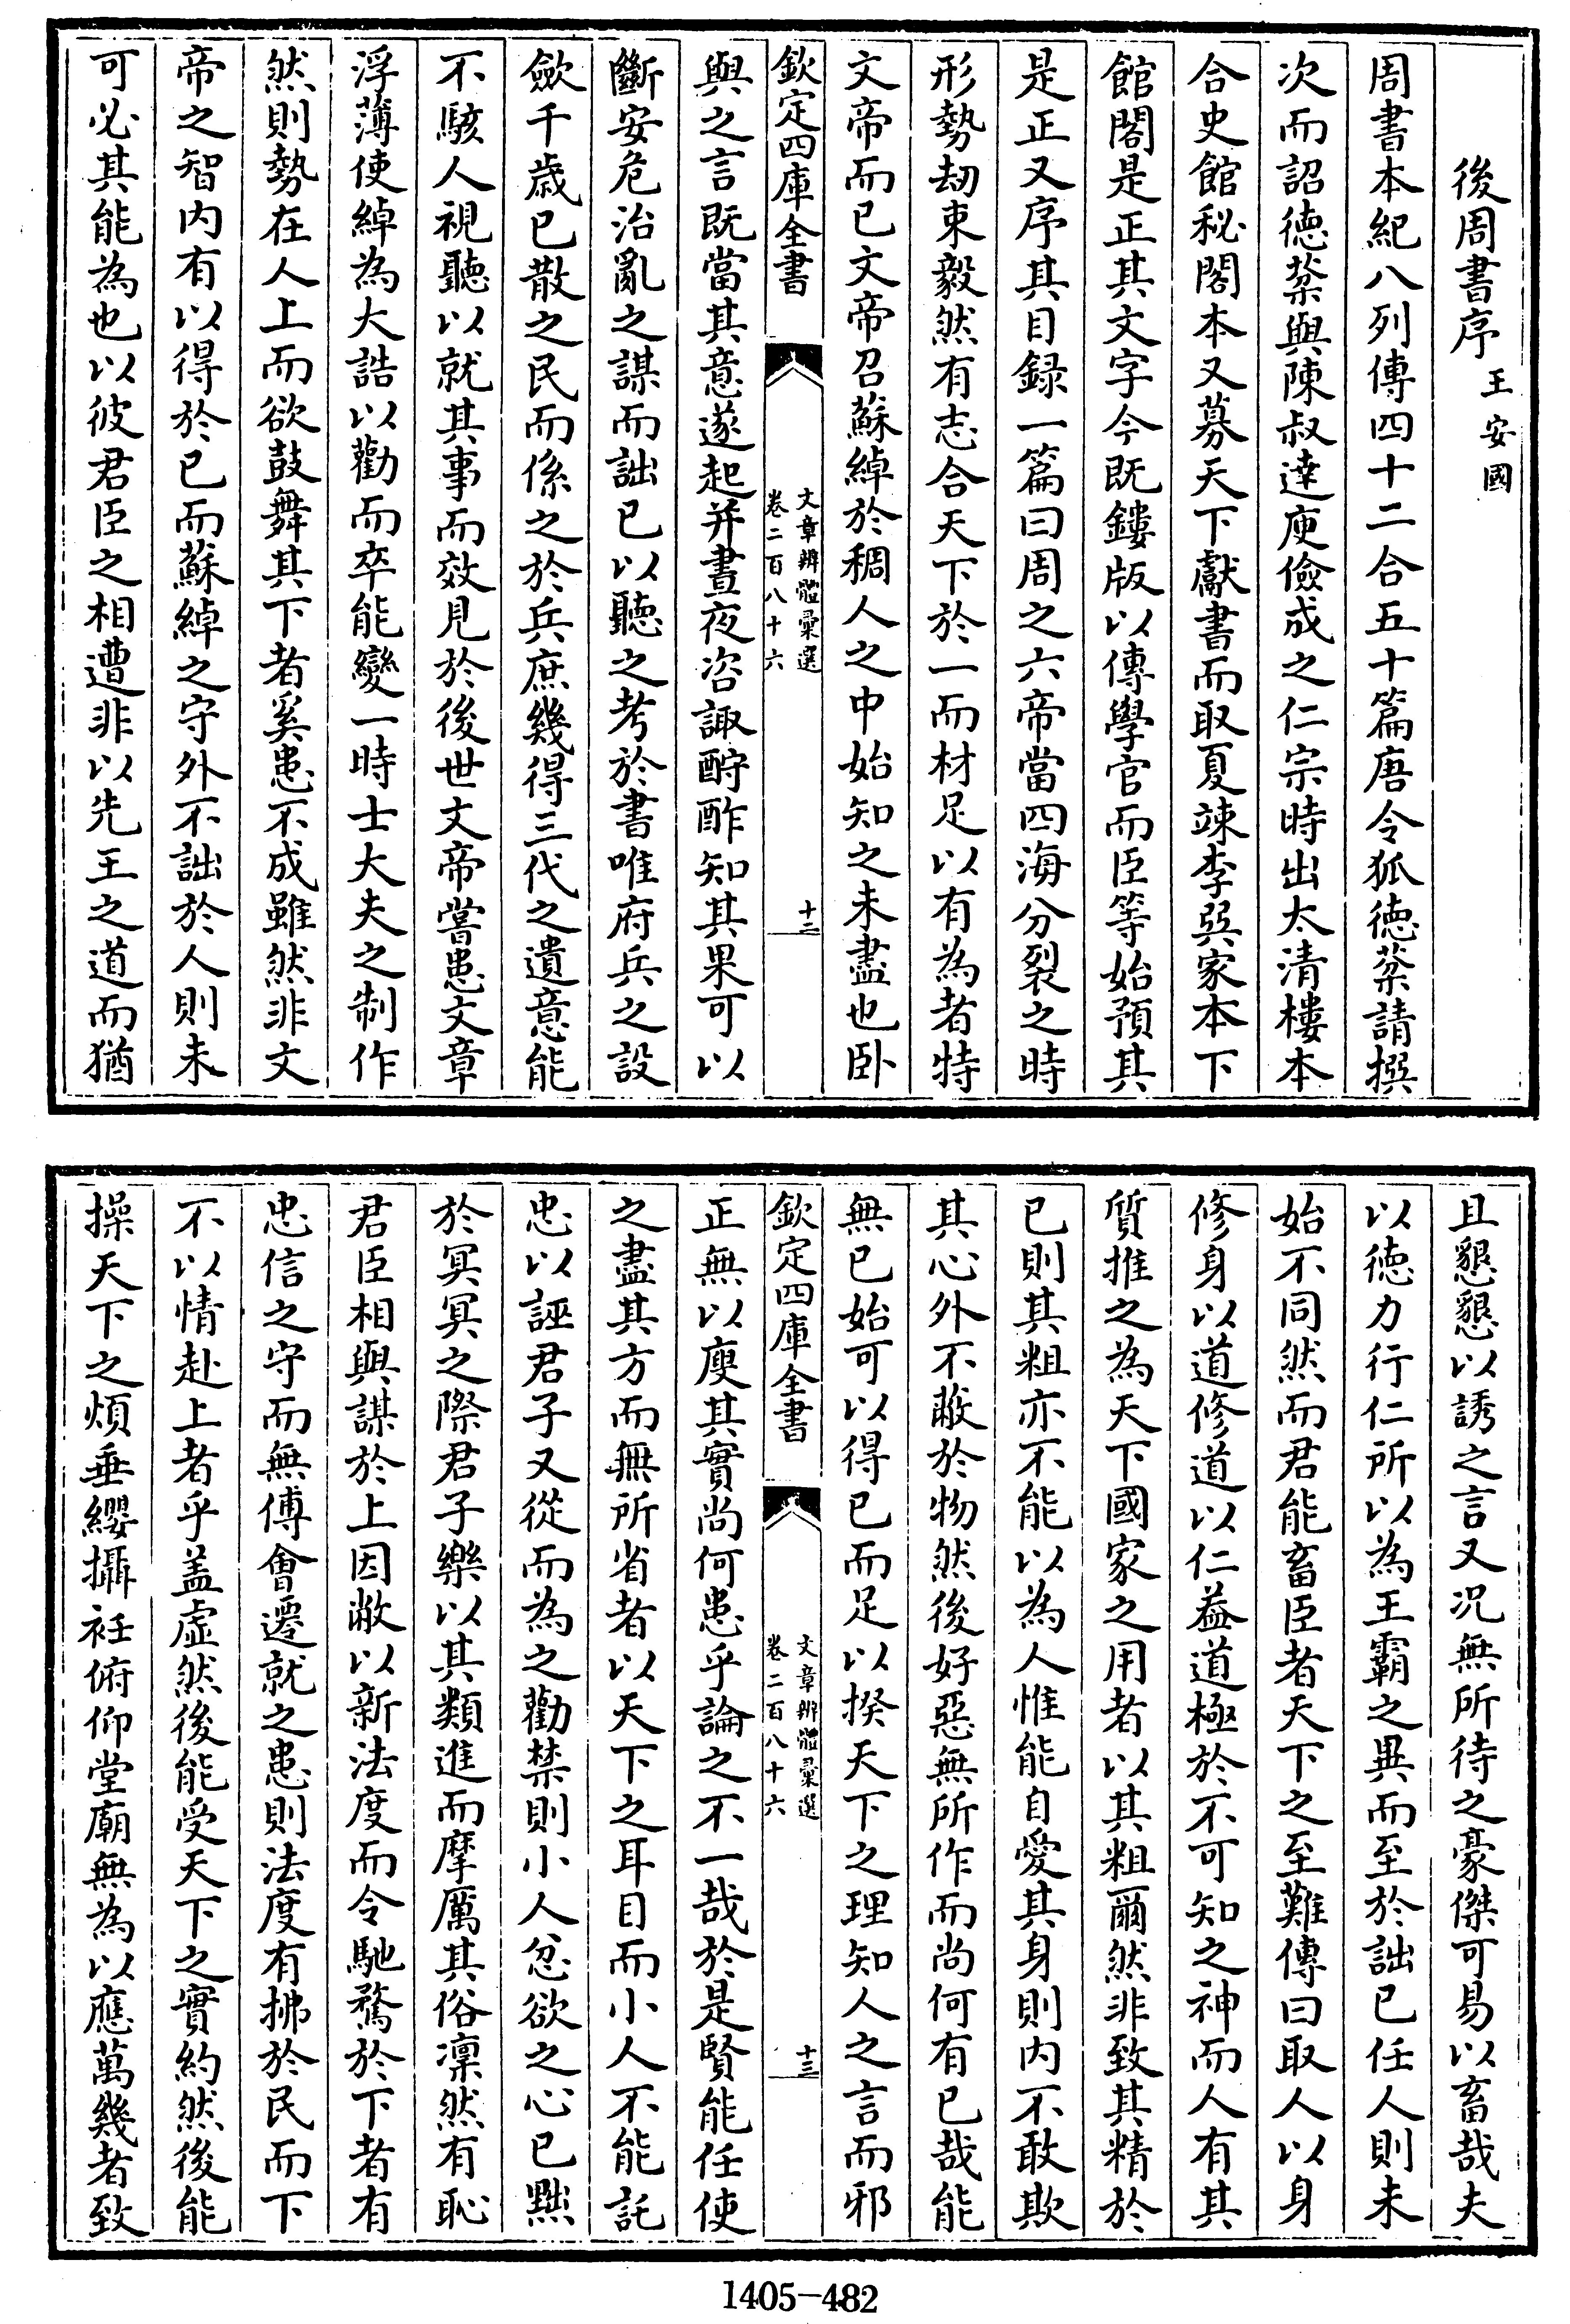 後周書序 王安國
周書本紀八列傳四十二合五十篇唐令狐徳棻請撰
次而詔徳棻與陳叔逹庾儉成之仁宗時出太清樓本
合史館秘閣本又募天下獻書而取夏竦李巽家本下
館閣是正其文字今既鏤版以傳學官而臣等始預其
是正又序其目録一篇曰周之六帝當四海分裂之時
形勢刼束毅然有志合天下於一而材足以有為者特
文帝而已文帝召蘇綽於稠人之中始知之未盡也卧
欽定四庫全書
文章辨體彙選
卷二百八十六
十二
與之言既當其意遂起并晝夜咨諏酧酢知其果可以
斷安危治亂之謀而詘已以聽之考於書唯府兵之設
歛千歳已散之民而係之於兵庶幾得三代之遺意能
不駭人視聽以就其事而效見於後世文帝嘗患文章
浮薄使綽為大誥以勸而卒能變一時士大夫之制作
然則勢在人上而欲鼓舞其下者奚患不成雖然非文
帝之智内有以得於已而蘇綽之守外不詘於人則未
可必其能為也以彼君臣之相遭非以先王之道而猶
且懇懇以誘之言又况無所待之豪傑可易以畜哉夫
以徳力行仁所以為王霸之異而至於詘已任人則未
始不同然而君能畜臣者天下之至難傳曰取人以身
修身以道修道以仁葢道極於不可知之神而人有其
質推之為天下國家之用者以其粗爾然非致其精於
已則其粗亦不能以為人惟能自愛其身則内不敢欺
其心外不蔽於物然後好惡無所作而尚何有已哉能
無已始可以得已而足以揆天下之理知人之言而邪
欽定四庫全書
文章辨體彙選
卷二百八十六
十三
正無以廋其實尚何患乎論之不一哉於是賢能任使
之盡其方而無所省者以天下之耳目而小人不能託
忠以誣君子又從而為之勸禁則小人忿欲之心已黜
於冥冥之際君子樂以其類進而摩厲其俗凛然有恥
君臣相與謀於上因敝以新法度而令馳騖於下者有
忠信之守而無傅會遷就之患則法度有拂於民而下
不以情赴上者乎盖虚然後能受天下之實約然後能
操天下之煩垂纓攝衽俯仰堂廟無為以應萬幾者致
1405-482